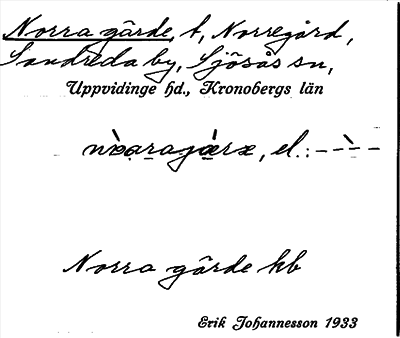 Norra gårde, t, Norregård,
Sandreda by, Sjösås sn,
Uppvidinge hd., Kronobergs län
el.
Norra gårde kb
Erik Johannesson 1933